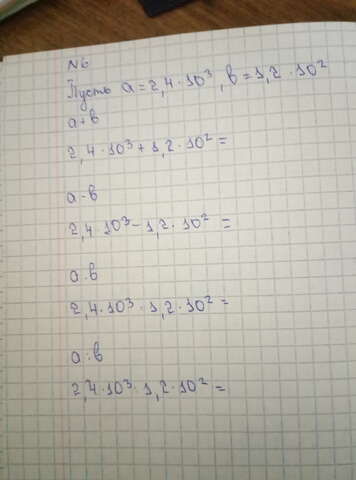 N6
Пусть a=2,4·10³, b=1,2·10²
a+b
2,4·10³+1,2·10²=
a-b
2,4·10³-1,2·10²=
a·b
2,4·10³·1,2·10²=
a:b
2,4·10³·1,2·10²=